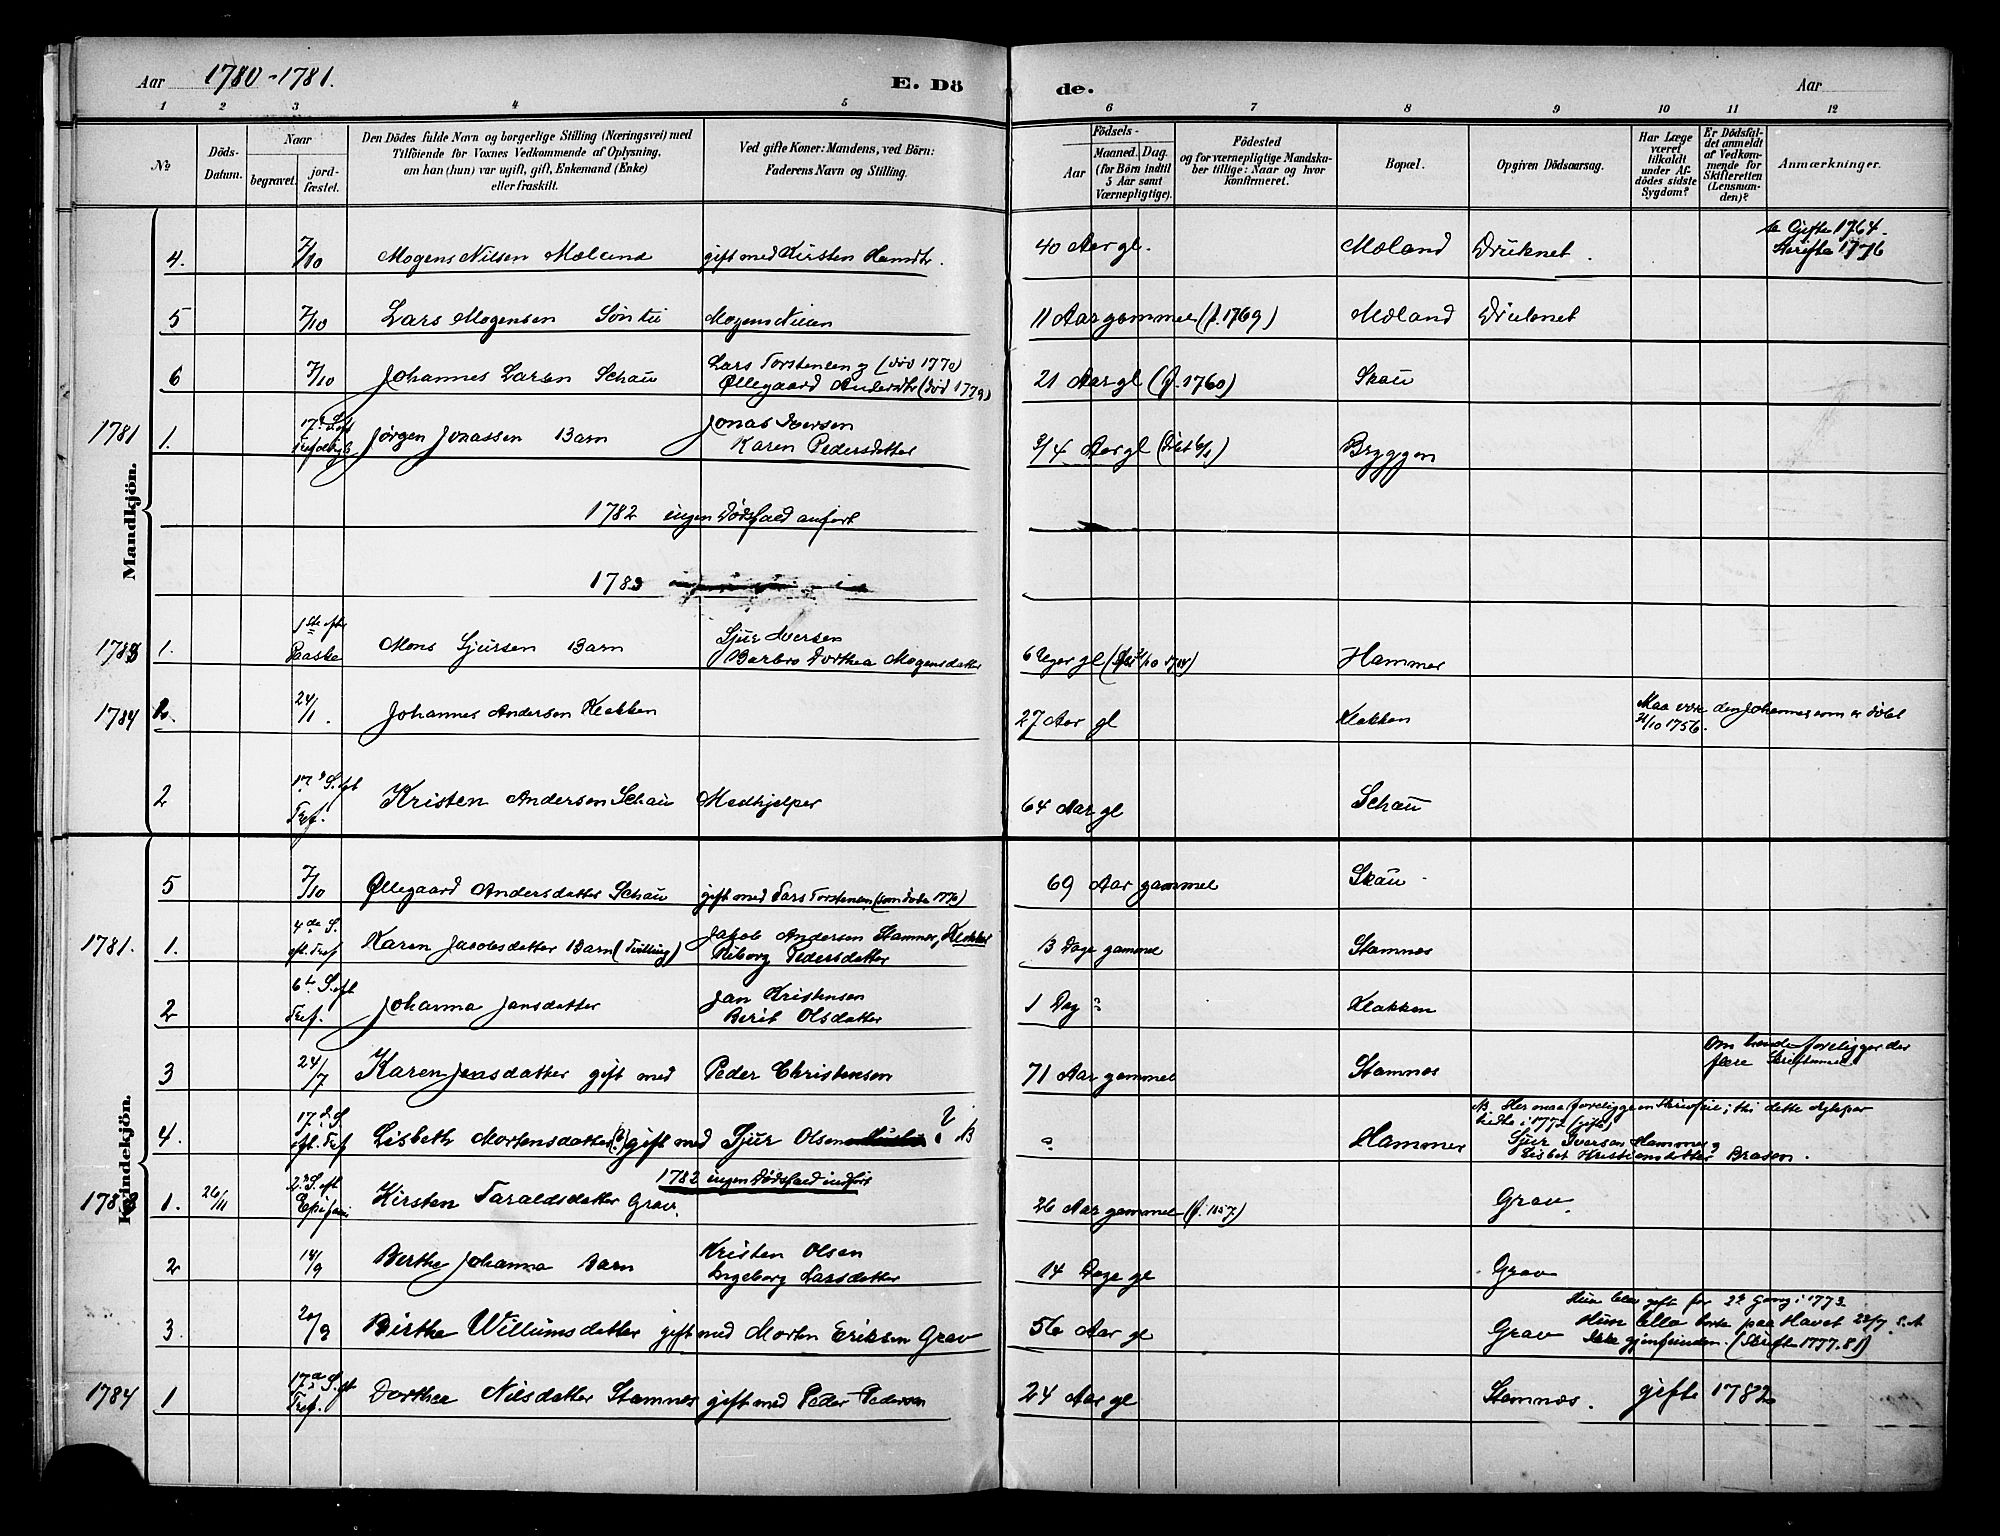 Aar 1780-1781.
E. Dö
de.
Aar
1 2 3 4 5 6 7 8 9 10 11 12
No
Döds-
Datum.
Naar
begravet.
jord-
fæstet.
Den Dödes fulde Navn og borgerlige Stilling (Næringsvei) med
Tilföiende for Voxnes Vedkommende af Oplysning,
om han (hun) var ugift, gift, Enkemand (Enke)
eller fraskilt.
Ved gifte Koner: Mandens, ved Börn:
Faderens Navn og Stilling.
Födsels-
Aar
Maaned.
Dag.
(for Börn indtil
5 Aar samt
Værnepligtige).
Födested
og for værnepligtige Mandska-
ber tillige: Naar og hvor
konfirmeret.
Bopæl.
Opgiven Dödsaarsag.
Har Læge
været
tilkaldt
under Af-
dödes sidste
Sygdom?
Er Dödsfal-
det anmeldt
af Vedkom-
mende for
Skifteretten
(Lensman-
den)?
Anmærkninger.
Mandkjön.
4. 7/10 Mogens Nilsen Mæland gift med Kirsten Hansdtr. 40 Aar gl. Mæland Druknet. Gifte 1764.
Skifte 1776
5 7/10 Lars Mogensen Søn til Mogens Nilsen 11 Aar gammel (f. 1769) Mæland Druknet
6 7/10 Johannes Larsen Schau Lars Torstensen og (død 1770)
Øllegaard Andersdtr (død 1779) 21 Aar gl (f. 1760) Skau
1781 1. Jørgen Jonassen Barn Jonas Iversen
Karen Pedersdatter 3/4 Aar gl (døbt 6/1) Bryggen
1782 ingen Dødsfald anført
1783
1783 1. 1ste efter
Paaske Mons Sjursen Barn Sjur Iversen
Barbro Dorthea Mogensdatter 6 Uger gl Hammer
1784 24/1. Johannes Andersen Klakken 27 Aar gl Klakken Maa være den Johannes som er døbt
31/10 1756.
2 17. S. eft
Tref. Kristen Andersen Schau Medhjelper 64 Aar gl Schau
Kvindekjön.
5 7/10 Øllegaard Andersdatter Schau gift med Lars Torstensen (som døde 1770) 69 Aar gammel Skau
1781. 1. 4de S.
eft. Tref Karen Jacobsdatter Barn (Tvilling) Jakob Andersen Stamnes, Klakken
Riborg Pedersdatter 13 Dage gammel Stamnæs
2 6te S. eft
Tref. Johanna Jansdatter Jan Kristensen
Berit Olsdatter 1 Dag " Klakken
3 24/7 Karen Jonsdatter gift med Peder Christensen 71 Aar gammel Stamnæs Om hende foreligger der
flere
4. 17. d. S.
eft. Tref Lisbeth Mortensdatter (?) gift med Sjur Olsen ? NB " Hammer NB Her maa foreligge en Skrivfeil; thi dette Ægtepar
Sjur Iversen Hammer og
Lisbet Kristiansdatter Brasen.
1782 ingen Dødsfald indført
1783 1. 26/11 2. S. eft
Epifani Kirsten Taraldsdatter Grav. 26 Aar gammel Grav.
2 14/9 Berthe Johanna Barn Kristen Olsen
Ingeborg Larsdatter 14 Dage gl Grav
3. 20/9 Birthe Willumsdatter gift med Morten Eriksen Grav 56 Aar gl Grav Hun blev gift for 2n Gang i 1773
Hun blev borte paa Havet 22/7 s. A
Ikke gjenfunden. (Skifte 1777.81)
1784 1 17de S. eft
Tref. Dorthea Nilsdatter Stamnes gift med Peder Pedersen 24 Aar gl Stamnæs. gifte 1782